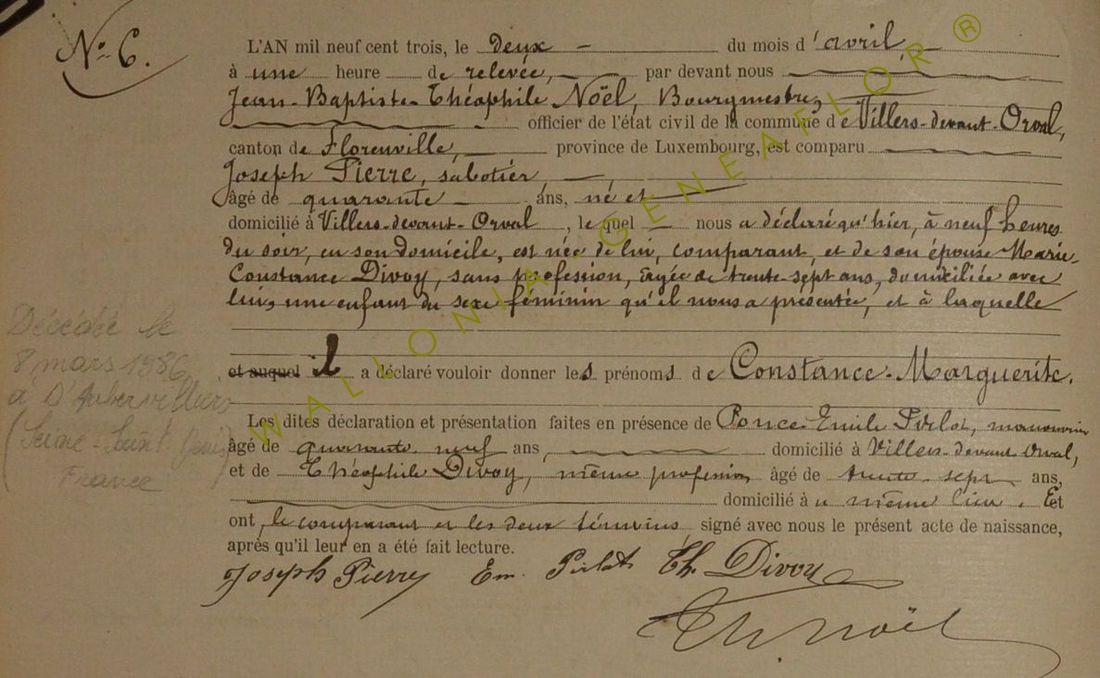 N° 6.
L'AN mil neuf cent trois, le deux du mois d'avril,
à une heure de relevée, par devant nous
Jean-Baptiste-Théophile Noël, Bourgmestre,
officier de l'état civil de la commune de Villers-devant-Orval,
canton de Florenville, province de Luxembourg, est comparu
Joseph Pierre, sabotier,
âgé de quarante ans, né et
domicilié à Villers-devant-Orval, lequel nous a déclaré qu'hier, à neuf heures
du soir, en son domicile, est née de lui, comparant, et de son épouse Marie-
Constance Divoy, sans profession, âgée de trente-sept ans, domiciliée avec
lui, une enfant du sexe féminin qu'il nous a présentée, et à laquelle
et auquel il a déclaré vouloir donner les prénoms de Constance-Marguerite.
Les dites déclaration et présentation faites en présence de Ponce-Emile Pirlot, manouvrier
âgé de quarante neuf ans, domicilié à Villers-devant Orval,
et de Théophile Divoy, même profession âgé de trente-sept ans,
domicilié au même lieu. Et
ont, le comparant et les deux témoins signé avec nous le présent acte de naissance,
après qu'il leur en a été fait lecture.
Joseph Pierre Em. Pirlot Th. Divoy
Th. Noël
Décédée le
8 mars 1986
à D'Aubervilliers
(Seine-Saint Denis)
France
WALLONIA-GENEAFLOR ®